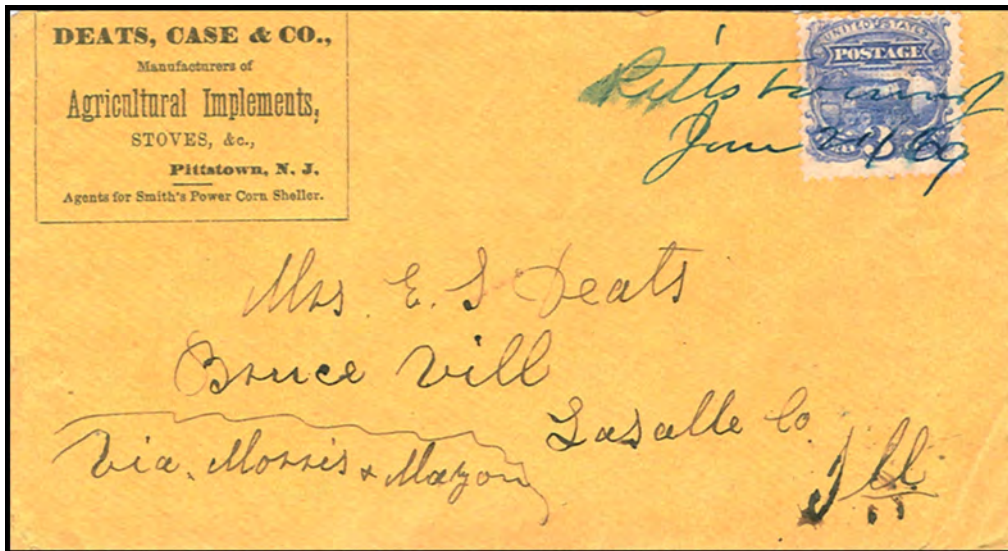 DEATS, CASE & CO.,
Manufacturers of
Agricultural Implements,
STOVES, &c.,
Pittstown, N. J.
Agents for Smith's Power Corn Sheller.
UNITED STATES
POSTAGE
Pittstown NJ
69
Mrs E. S Deats
Bruce Vill
Lasalle Co
Via. Morris & Mazon
Ill